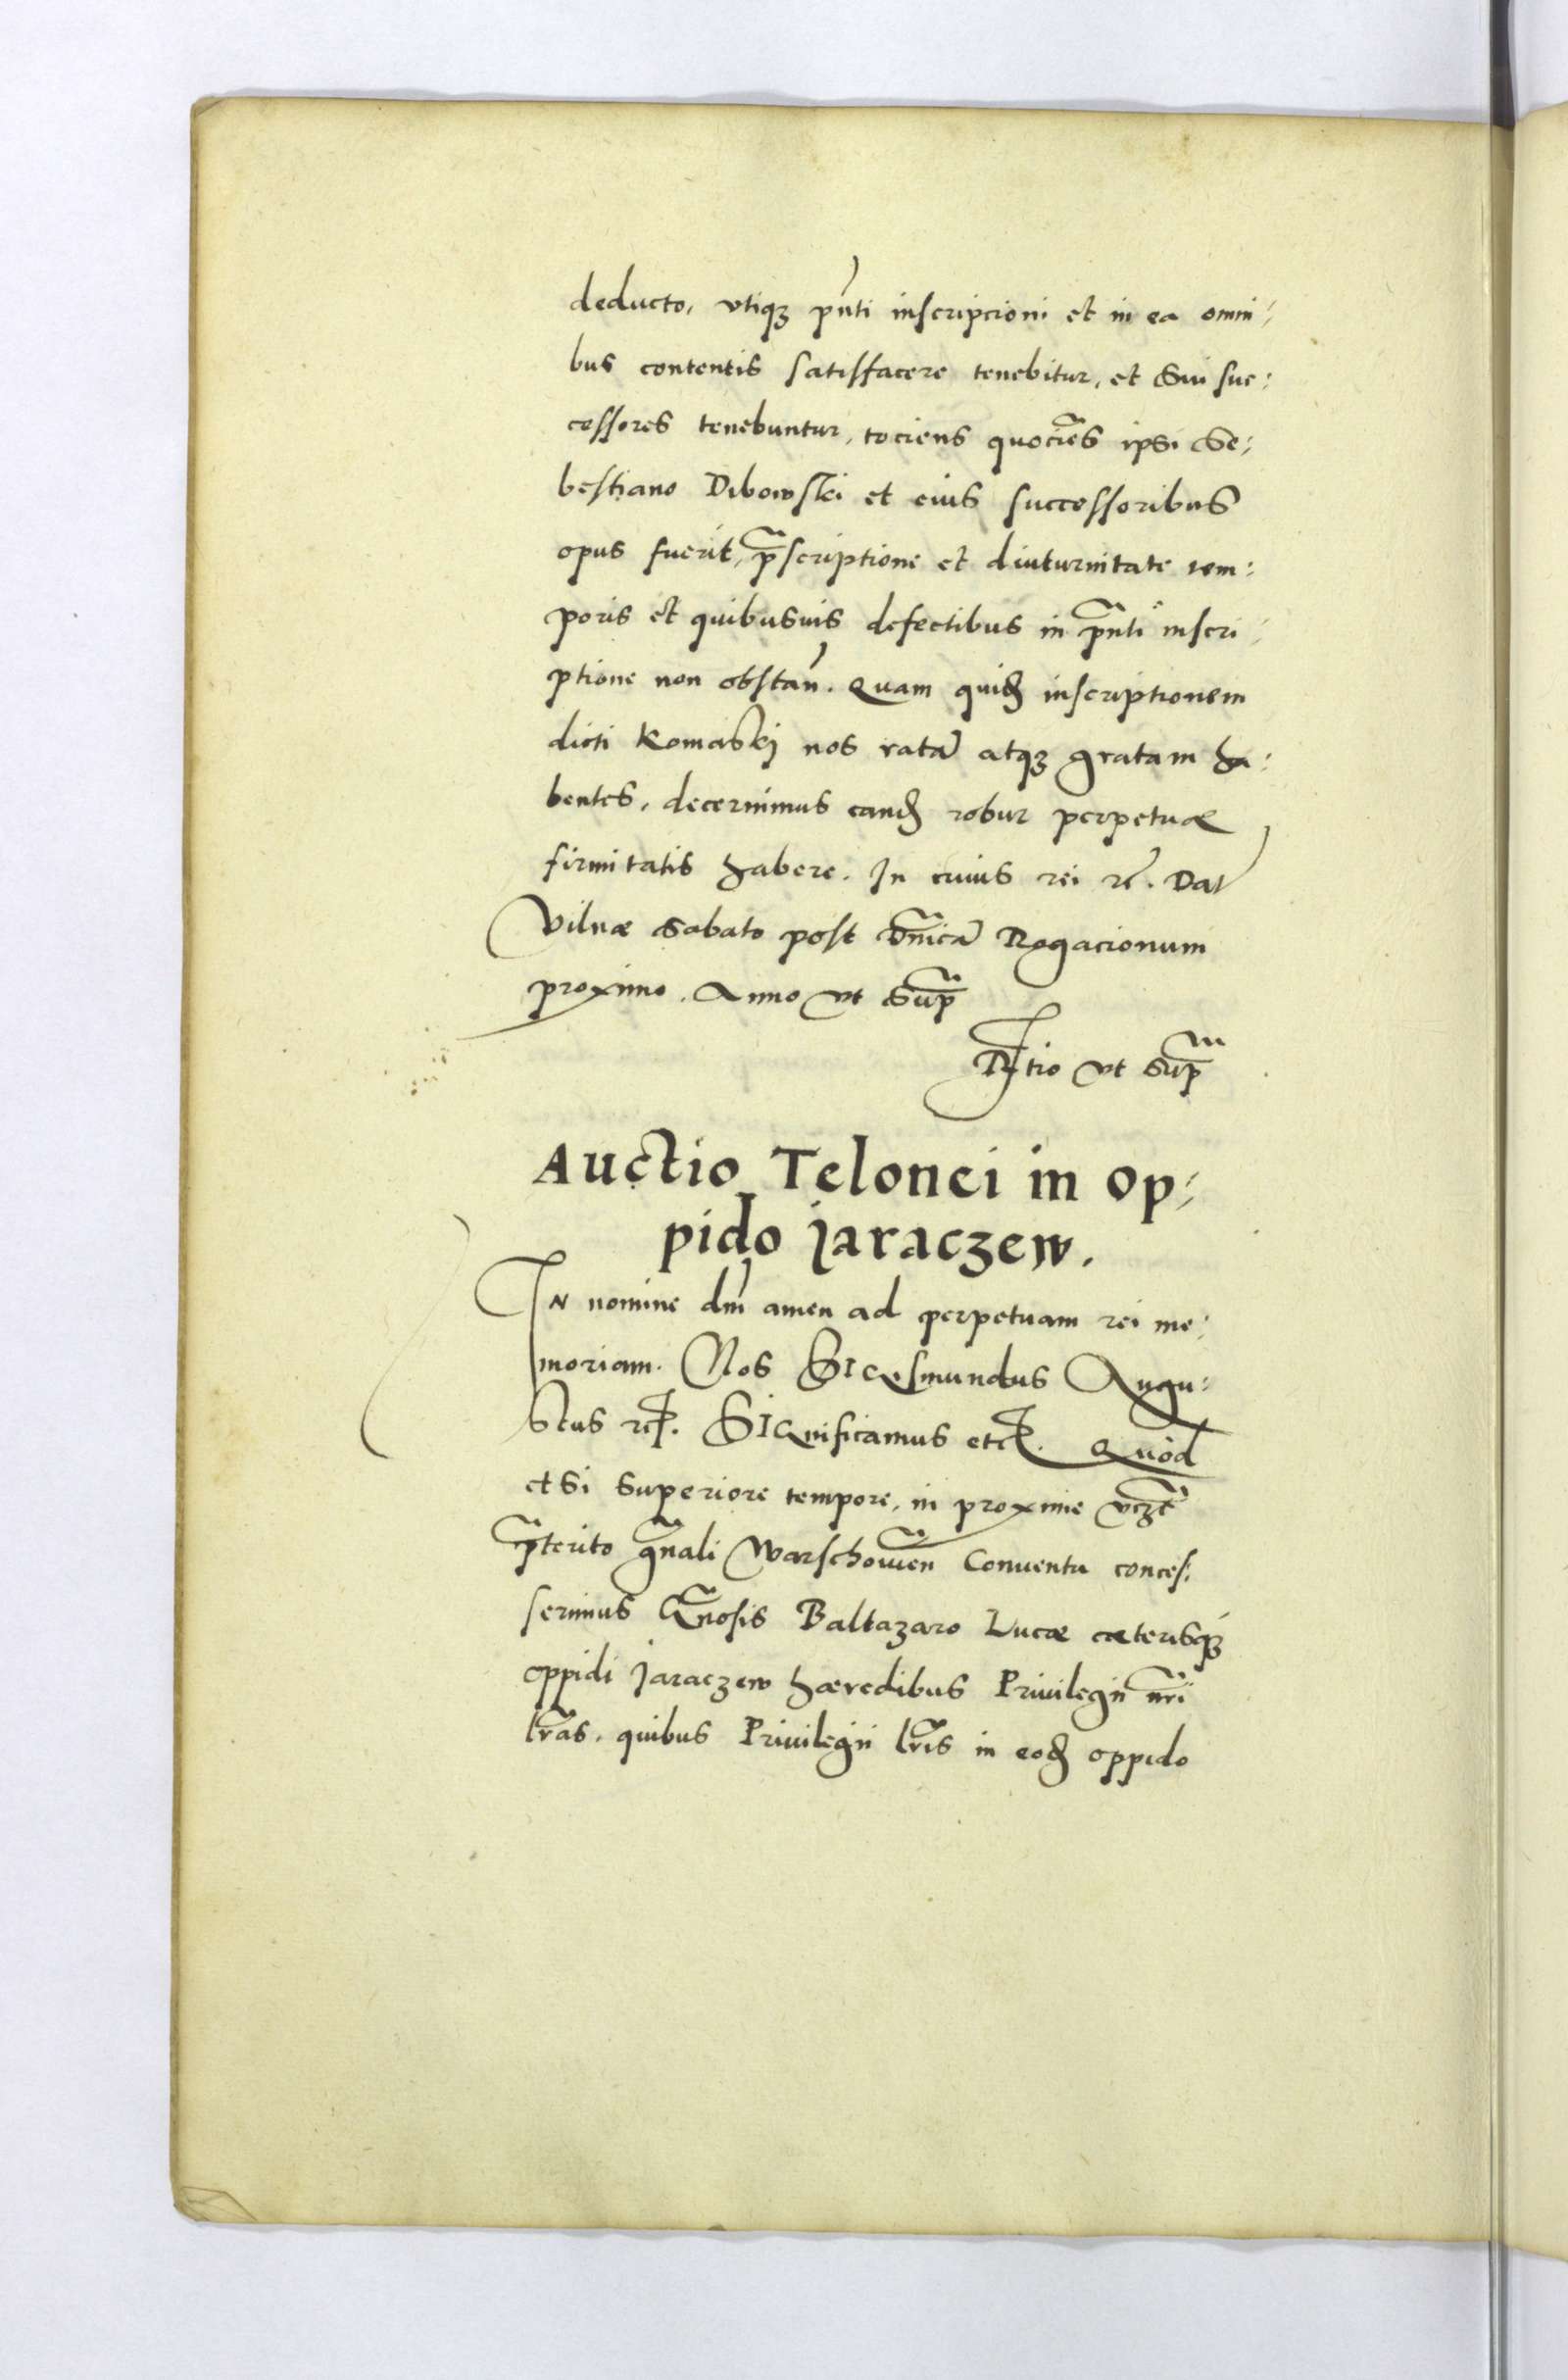 deducto, vtiqꝫ p̄nti inscripcioni et in ea omni⸗
bus contentis satisfacere tenebitur, et Sui suc⸗
cessores tenebuntur, tociens quociēs ipsi Se⸗
bestiano Dibowski et eius successoribus
opus fuerit, p̄scriptione et diuturnitate tem⸗
poris et quibusuis defectibus in p̄nti inscri⸗
ptione non obstan̄. Quam quid̄ inscriptionem
dicti Komaskj nos ratā atqꝫ gratam ha⸗
bentes, decernimus eand̄ robur perpetuæ
firmitatis habere. In cuius rei rē. Dat
Vilnæ Sabato post Dn̄icā Rogacionum
proximo. Anno vt Sup̄
R̄tio vt Sup̄
Auctio Telonei in op⸗
pido jaraczew.
In nomine dn̄i amen ad perpetuam rei me⸗
moriam. Nos SIGIsmundus Augu⸗
stus rc̄. SIGnificamus etc̄. Quod
etsi superiore tempore, in proxime vcꝫt
p̄terito gn̄ali Warschowien̄ Conuentu conces⸗
serimus Gn̄osis Baltazaro Lucæ cæterisqꝫ
oppidi Jaraczew hæredibus Priuilegij nr̄i
lr̄as, quibus Priuilegij lr̄is in eod̄ oppido